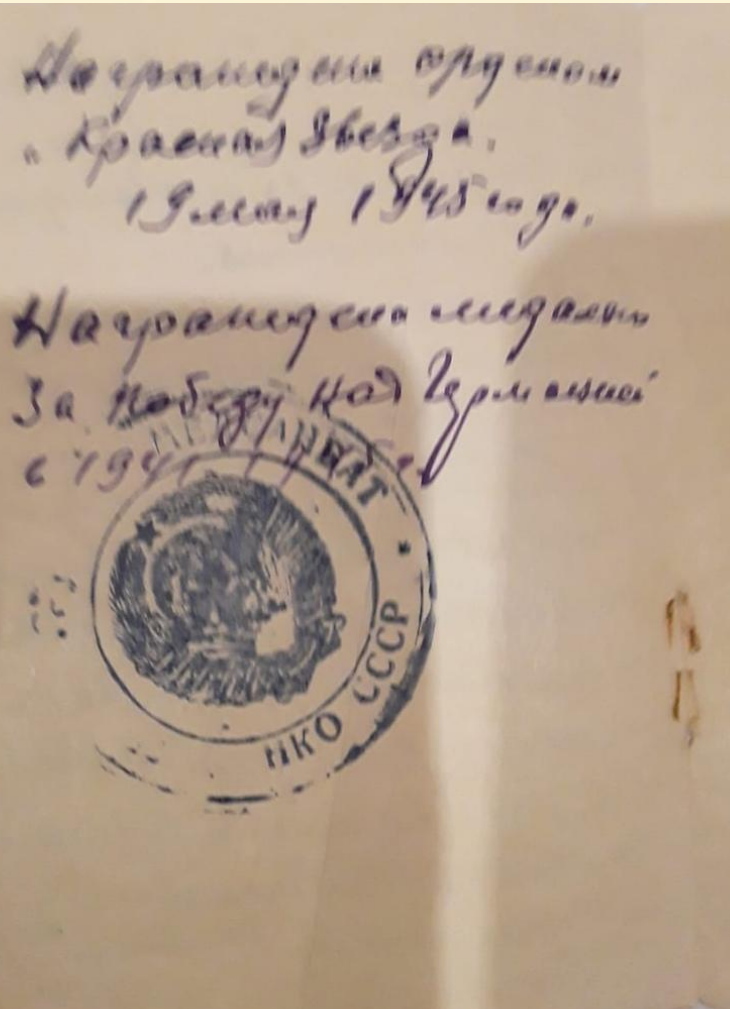 Награждена орденом
"Красная Звезда.
19 мая 1945 года.
Награждена медалью
За Победу над Германией
в 1941
НКО СССР